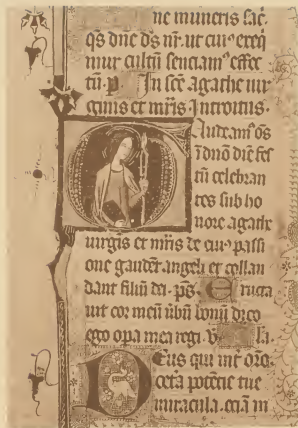 ne muneris sac̄.
qs dn̄e ds̄ nr̄. ut cui⁹ exeq̄
mur cultū senciam⁹ effec
tū. p. In scē agathe uir
ginis et mr̄is Introitus.
Audeam⁹ os̄
ī dn̄o diē fes
tū celebran
tes sub ho
nore agathe
uirgīs et mr̄is de cui⁹ passi
one gaudēt angeli et collau
dant filiū dei. ps̄. Eructa
uit cor meū ūbū bonū dico
ego opa mea regi. v la.
Deus qui int̄ oīa
cet̄a potētie tue
miracula. eciā in